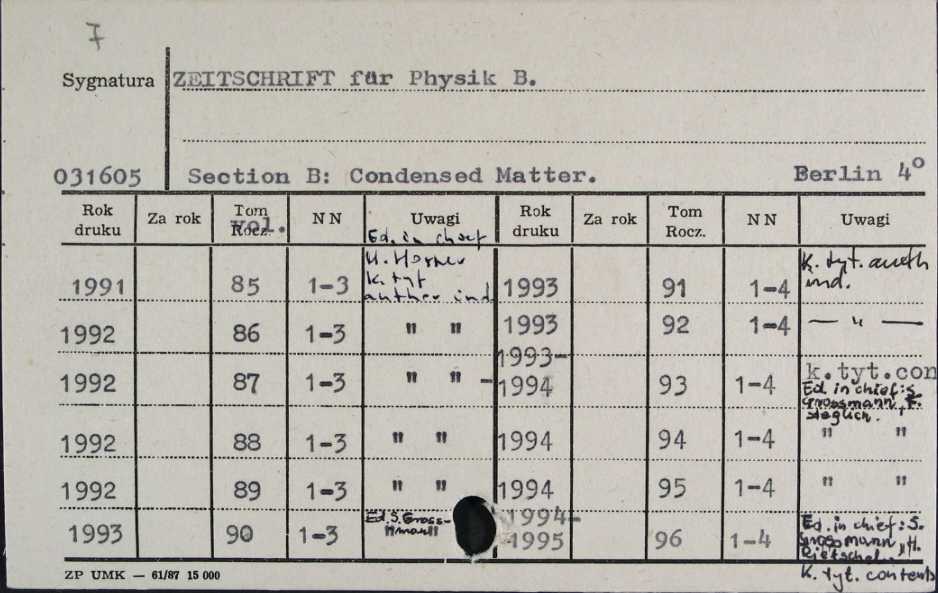 7
Sygnatura ZEITSCHRIFT für Physik B.
031605 Section B: Condensed Matter. Berlin 4°
Rok druku Za rok Tom Rocz. vol. NN Uwagi Rok druku Za rok Tom Rocz. NN Uwagi
1991 85 1-3 Ed. in chief H. Horner K. tyt anther ind. 1993 91 1-4 K. tyt. auth ind.
1992 86 1-3 " " 1993 92 1-4 — " —
1992 87 1-3 " " - 1993-1994 93 1-4 k.tyt.con Ed. in chief: S. Grossmann, F. Steglich.
1992 88 1-3 " " 1994 94 1-4 " "
1992 89 1-3 " " 1994 95 1-4 " "
1993 90 1-3 Ed. S. Gross-mann 1994-1995 96 1-4 Ed. in chief: S. Grossmann, H. Rietschel.
ZP UMK — 61/87 15 000 K. tyt. contents